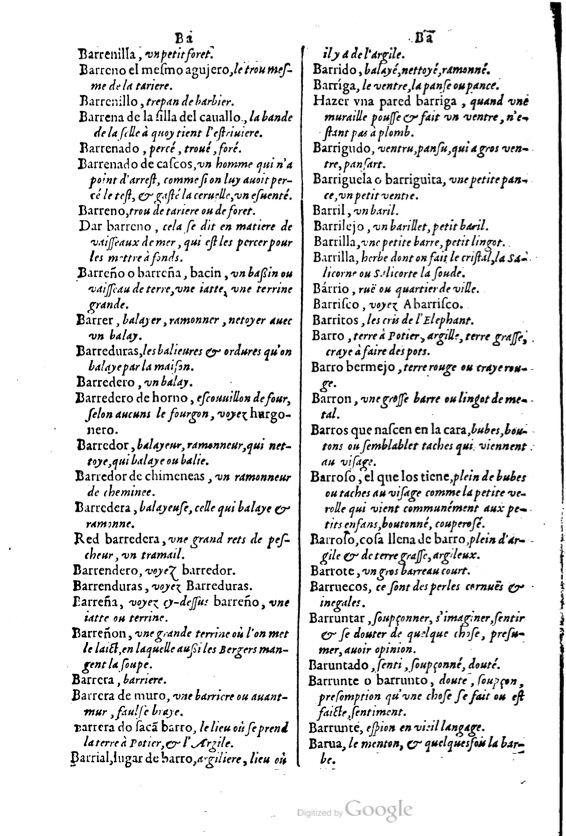 Ba
Barrenilla, vn petit foret.
Barreno el mesmo agujero, le trou mes-
me de la tariere.
Barrenillo, trepan de barbier.
Barrena de la silla del cauallo., la bande
de la selle à quoy tient l'estriuiere.
Barrenado, percé, troué, foré.
Barrenado de cascos, vn homme qui n'a
point d'arrest, comme si on luy auoit per-
cé le test, & gasté la ceruelle, vn esuenté.
Barreno, trou de tariere ou de foret.
Dar barreno, cela se dit en matiere de
vaisseaux de mer, qui est les percer pour
les mettre à fonds.
Barreño o barreña, bacin, vn bassin ou
vaisseau de terre, vne iatte, vne terrine
grande.
Barrer, balayer, ramonner, netoyer auec
vn balay.
Barreduras, les balieures & ordures qu'on
balaye par la maison.
Barredero, vn balay.
Barredero de horno, escouillon de four,
selon aucuns le fourgon, voyez hurgo-
nero.
Barredor, balayeur, ramonneur, qui net-
toye, qui balaye ou balie.
Barredor de chimeneas, vn ramonneur
de cheminee.
Barredera, balayeuse, celle qui balaye &
ramonne.
Red barredera, vne grand rets de pes-
cheur, vn tramail.
Barrendero, voyez barredor.
Barrenduras, voyez Barreduras.
Barreña, voyez cy-dessus barreño, vne
iatte ou terrine.
Barreñon, vne grande terrine où l'on met
le laict, en laquelle aussi les Bergers man-
gent la soupe.
Barrera, barriere.
Barrera de muro, vne barriere ou auant-
mur, faulse braye.
Barrera do sacã barro, le lieu où se prend
la terre à Potier, & l'Argile.
Barrial, lugar de barro, argiliere, lieu où
Ba
il y a de l'argile.
Barrido, balayé, nettoyé, ramonné.
Barriga, le ventre, la panse ou pance.
Hazer vna pared barriga, quand vne
muraille pousse & fait un ventre, n'e-
stant pas à plomb.
Barrigudo, ventru, pansu, qui a gros ven-
tre, pansart.
Barriguela o barriguita, vne petite pan-
ce, vn petit ventre.
Barril, vn baril.
Barrilejo, vn barillet, petit baril.
Barrilla, vne petite barre, petit lingot.
Barrilla, herbe dont on fait le cristal, la Sa-
licorne ou Salicorte la soude.
Bàrrio, ruë ou quartier de ville.
Barrisco, voyez Abarrisco.
Barritos, les cris de l'Elephant.
Barro, terre à Potier, argille, terre grasse,
craye à faire des pots.
Barro bermejo, terre rouge ou craye rou-
ge.
Barron, vne grosse barre ou lingot de me-
tal.
Barros que nascen en la cara, bubes, bou-
tons ou semblablet taches qui viennent
au visage.
Barroso, el que los tiene, plein de bubes
ou taches au visage comme la petite ve-
rolle qui vient communément aux pe-
tits enfans, boutonné, couperosé.
Barroso, cosa llena de barro, plein d'ar-
gile & de terre grasse, argileux.
Barrote, vn gros barreau court.
Barruecos, ce sont des perles cornuës &
inegales.
Barruntar, soupçonner, s'imaginer, sentir
& se douter de quelque chose, presu-
mer, auoir opinion.
Baruntado, senti, soupçonné, douté.
Barrunte o barrunto, doute, soupçon,
presomption qu'vne chose se fait ou est
faicte, sentiment.
Barrunte, espion en vieil langage.
Barua, le menton, & quelquesfois la bar-
be.
Digitized by Google